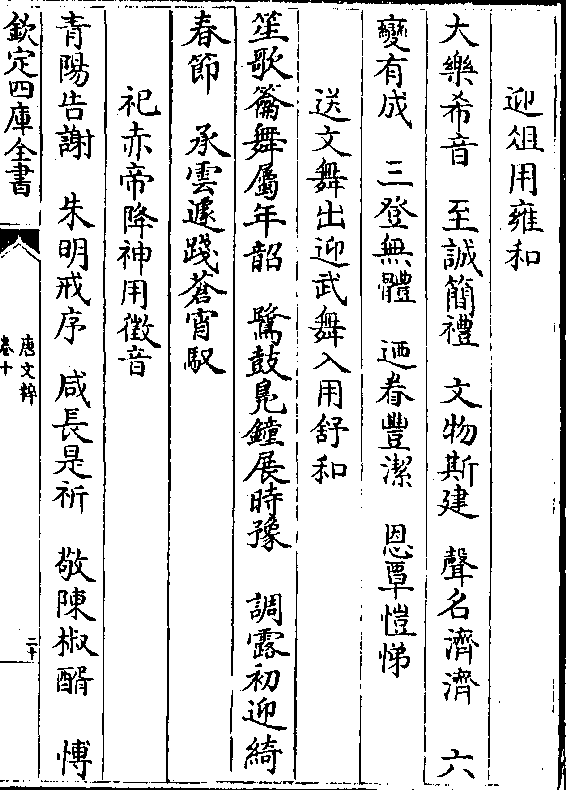 迎俎用雍和
大樂希音　至誠簡禮　文物斯建　聲名濟濟　六
變有成　三登無體　迺眷豐潔　恩覃愷悌
送文舞出迎武舞入用舒和
笙歌籥舞屬年韶　鷺鼓鳧鐘展時豫　調露初迎綺
春節　承雲遽踐蒼宵馭
祀赤帝降神用徵音
青陽告謝　朱明戒序　咸長是祈　敬陳椒醑　愽
欽定四庫全書
唐文粹
卷十
二十